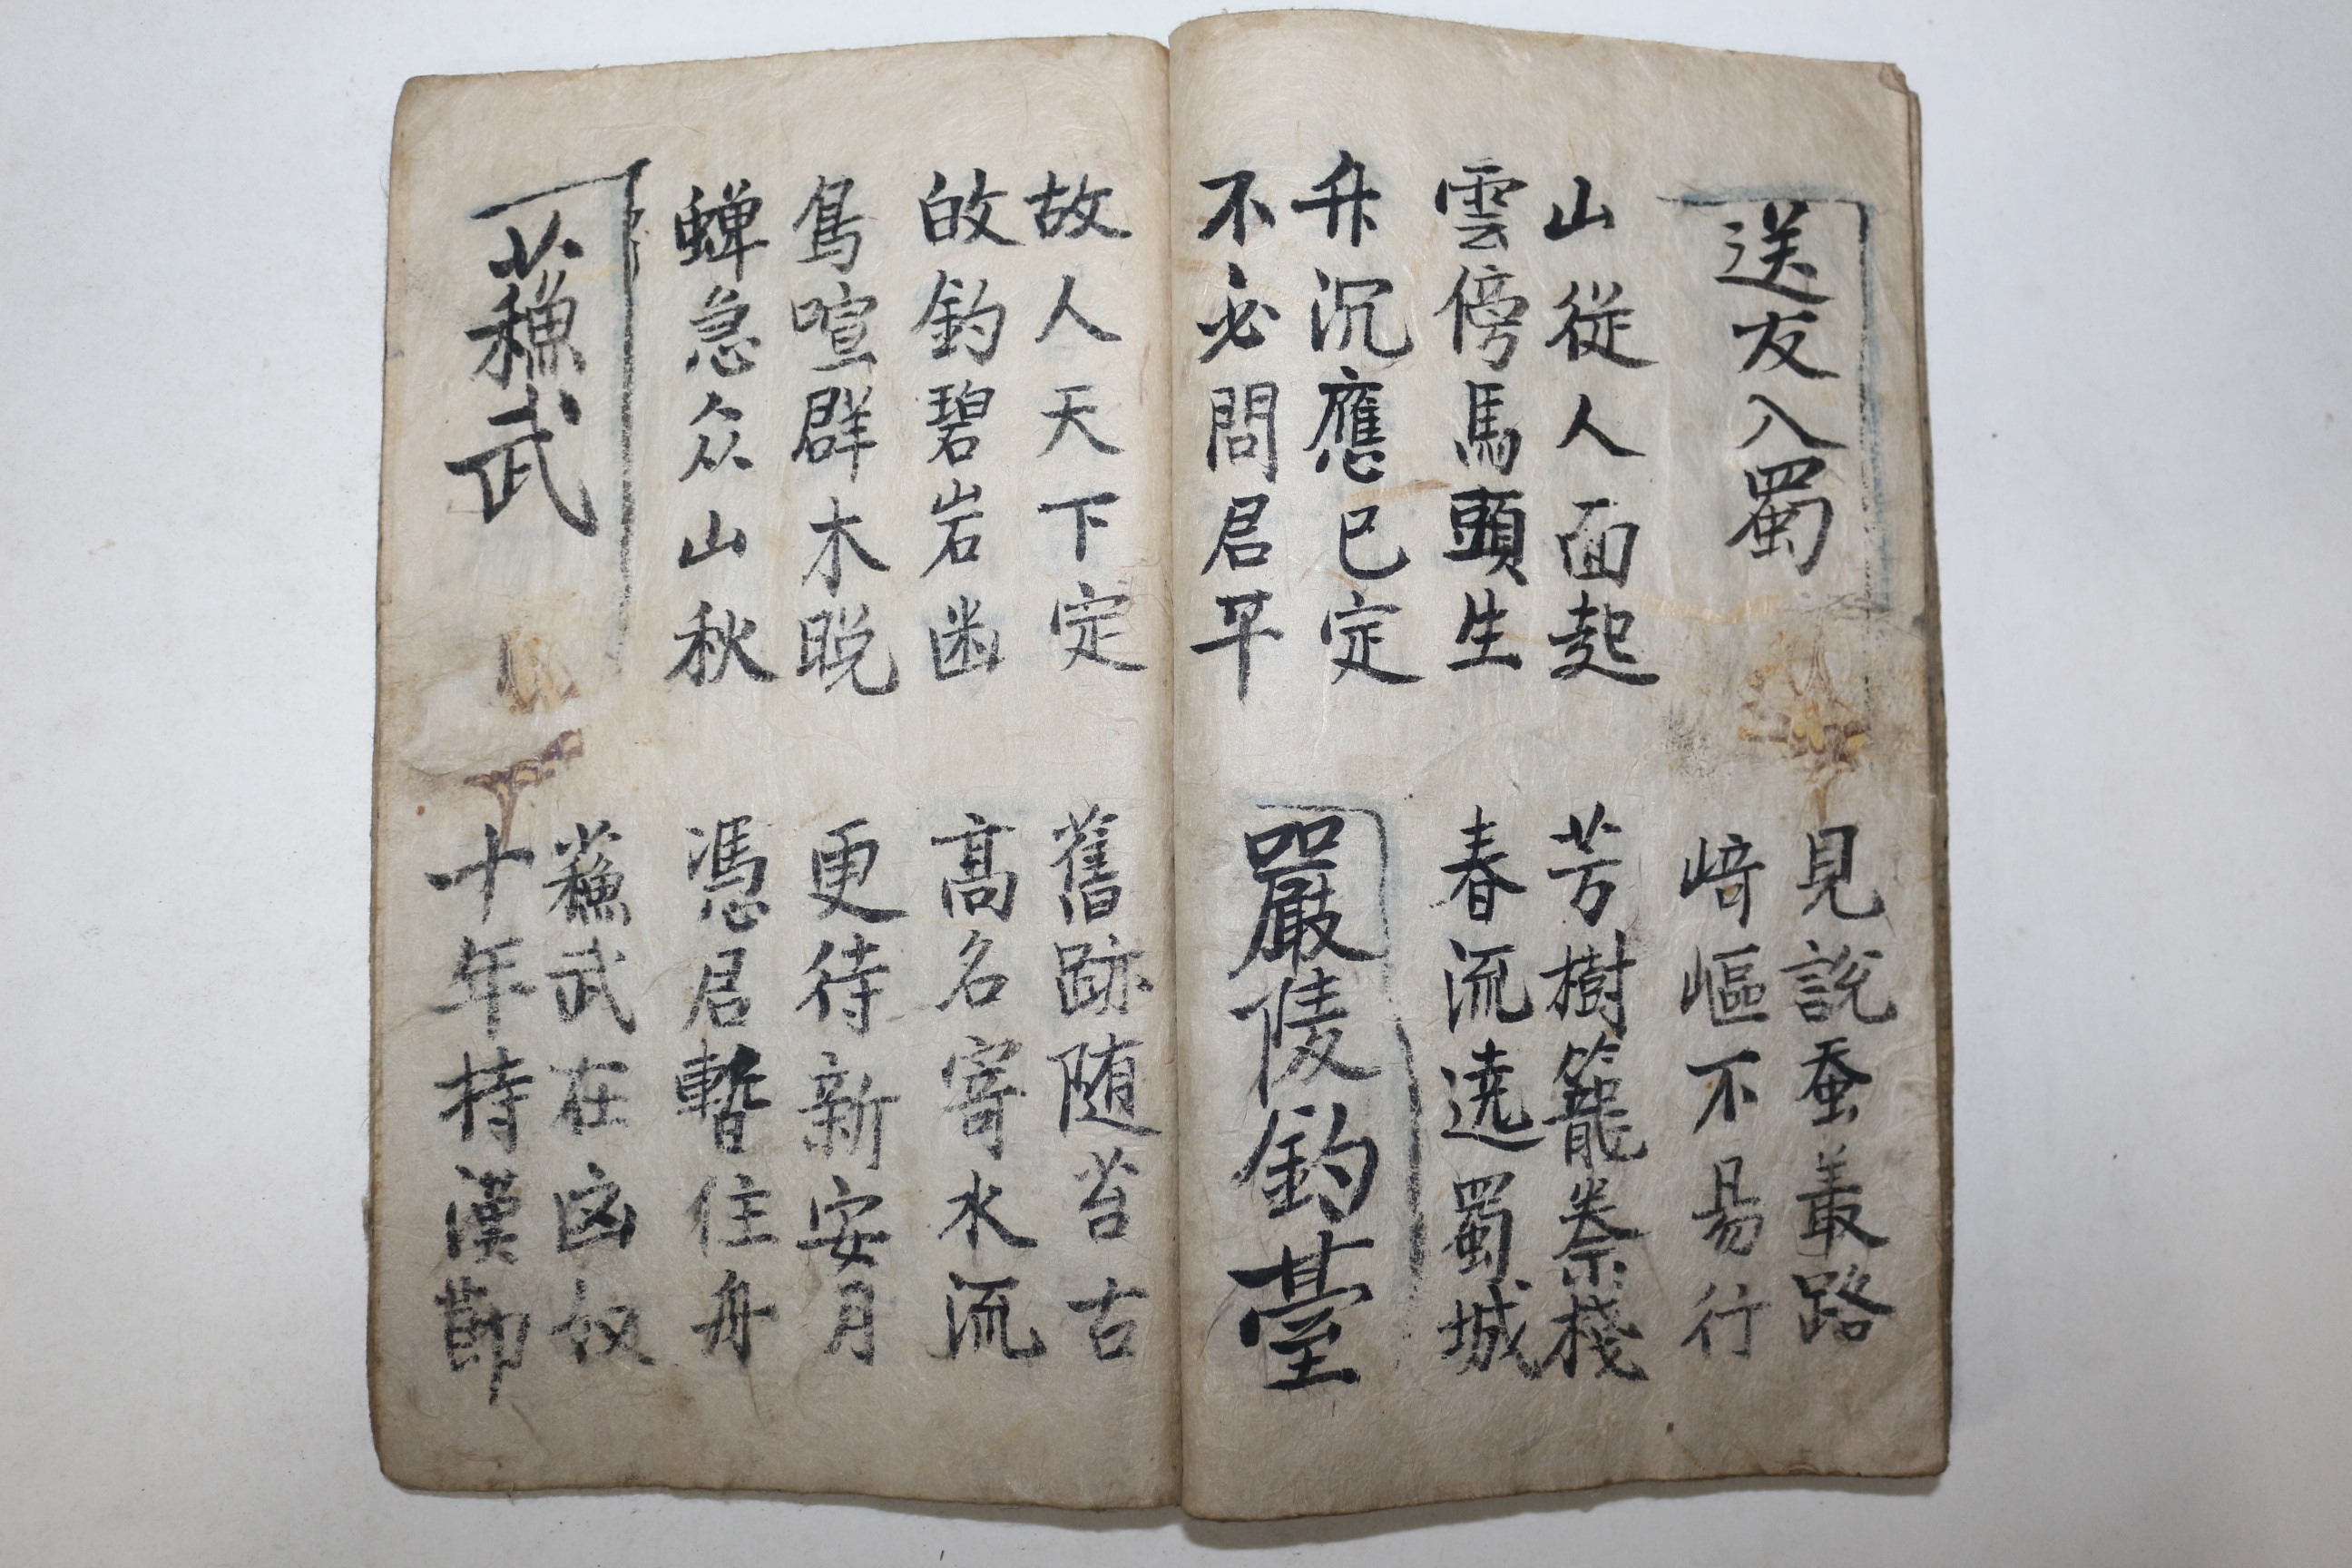 送友入蜀
見說蚕叢路
崎嶇不易行
山從人面起
雲傍馬頭生
芳樹籠秦棧
春流遶蜀城
升沉應已定
不必問君平
嚴陵釣臺
故人天下定
敀釣碧岩幽
舊跡随苔古
高名寄水流
鳥喧群木晩
蟬急众山秋
更待新安月
憑君暫住舟
蘓武
蘓武在匈奴
十年持漢節